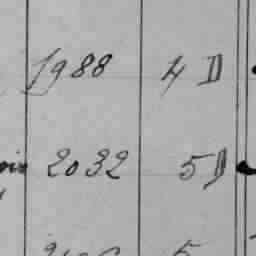 1988 4 D
2032 5 D